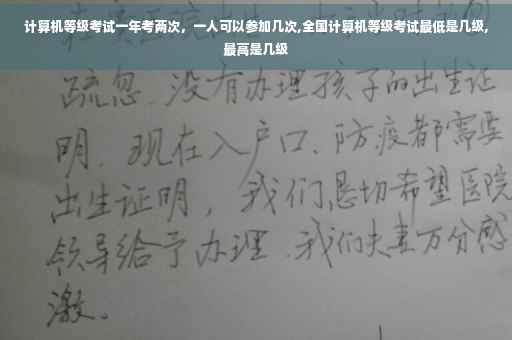 计算机等级考试一年考两次，一人可以参加几次,全国计算机等级考试最低是几级,
最高是几级
疏忽.没有办理孩子的出生证
明.现在入户口、防疫都需要
出生证明，我们恳切希望医院
领导给予办理.我们夫妻万分感
激。